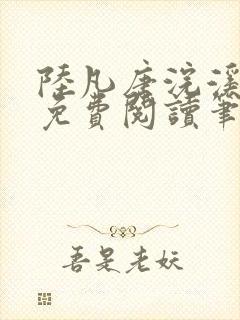 陸凡唐浣溪
免費閱讀筆
吾是老妖